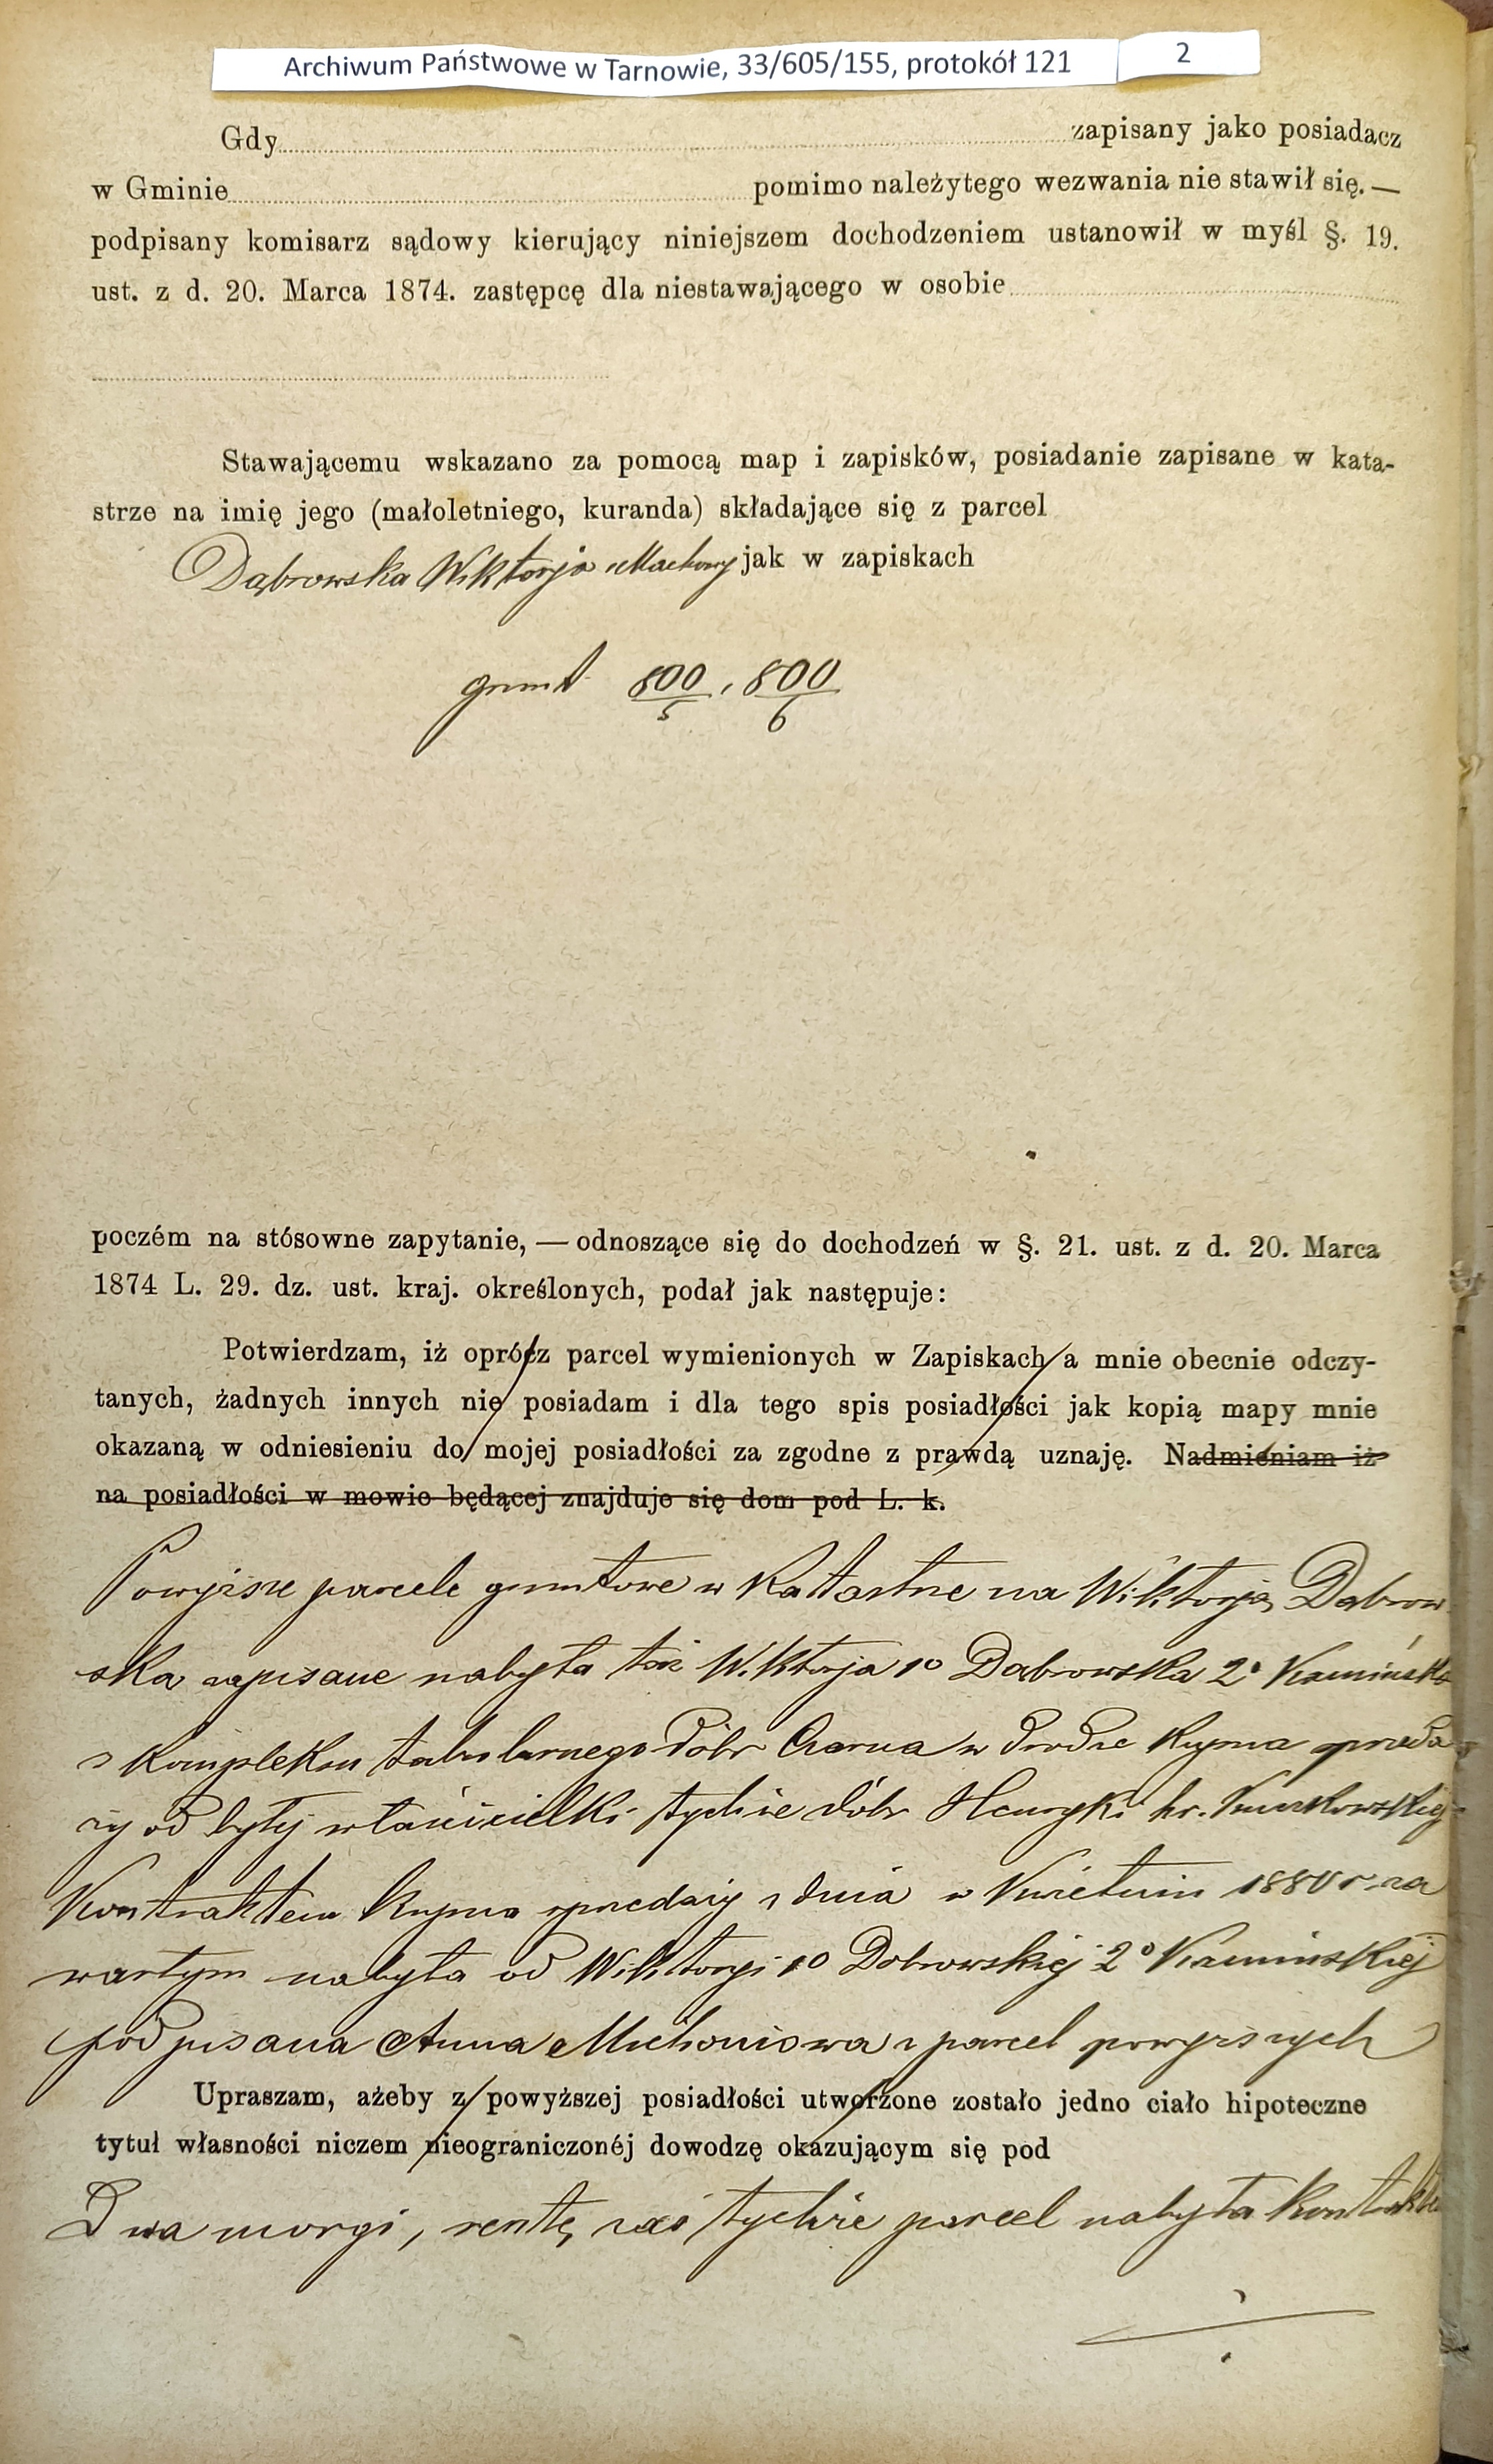 Archiwum Państwowe w Tarnowie, 33/605/155, protokół 121 2
Gdy zapisany jako posiadacz
w Gminie pomimo należytego wezwania nie stawił się. —
podpisany komisarz sądowy kierujący niniejszem dochodzeniem ustanowił w myśl §. 19.
ust. z d. 20. Marca 1874. zastępcę dla niestawającego w osobie
Stawającemu wskazano za pomocą map i zapisków, posiadanie zapisane w kata-
strze na imię jego (małoletniego, kuranda) składające się z parcel
Dąbrowska Wiktorja jak w zapiskach
grunt 800/5, 800/6
poczém na stósowne zapytanie, — odnoszące się do dochodzeń w §. 21. ust. z d. 20. Marca
1874 L. 29. dz. ust. kraj. określonych, podał jak następuje:
Potwierdzam, iż oprócz parcel wymienionych w Zapiskach a mnie obecnie odczy-
tanych, żadnych innych nie posiadam i dla tego spis posiadłości jak kopią mapy mnie
okazaną w odniesieniu do mojej posiadłości za zgodne z prawdą uznaję. Nadmieniam iż
na posiadłości w mowie będącej znajduje się dom pod L. k.
Powyższe parcele gruntowe w Katastrze na Wiktorją Dąbrow
ska zapisane nabyła taż Wiktorja 1o Dąbrowska 2o Kamińska
z kompleksu tabularnego dóbr Czarna w drodze kupna sprzeda
ży od byłej właścicielki tychże dóbr Henryki hr.
Kontraktem kupna sprzedaży z dnia w Kwietniu 1880 r. za
wartym nabyła od Wiktorji 1o Dobrowskiej 2o Kamińskiej
podpisana Anna z parcel powyższych
Upraszam, ażeby z powyższej posiadłości utworzone zostało jedno ciało hipoteczne
tytuł własności niczem nieograniczonéj dowodzę okazującym się pod
Dwa morgi, resztę zaś tychże parcel nabyła